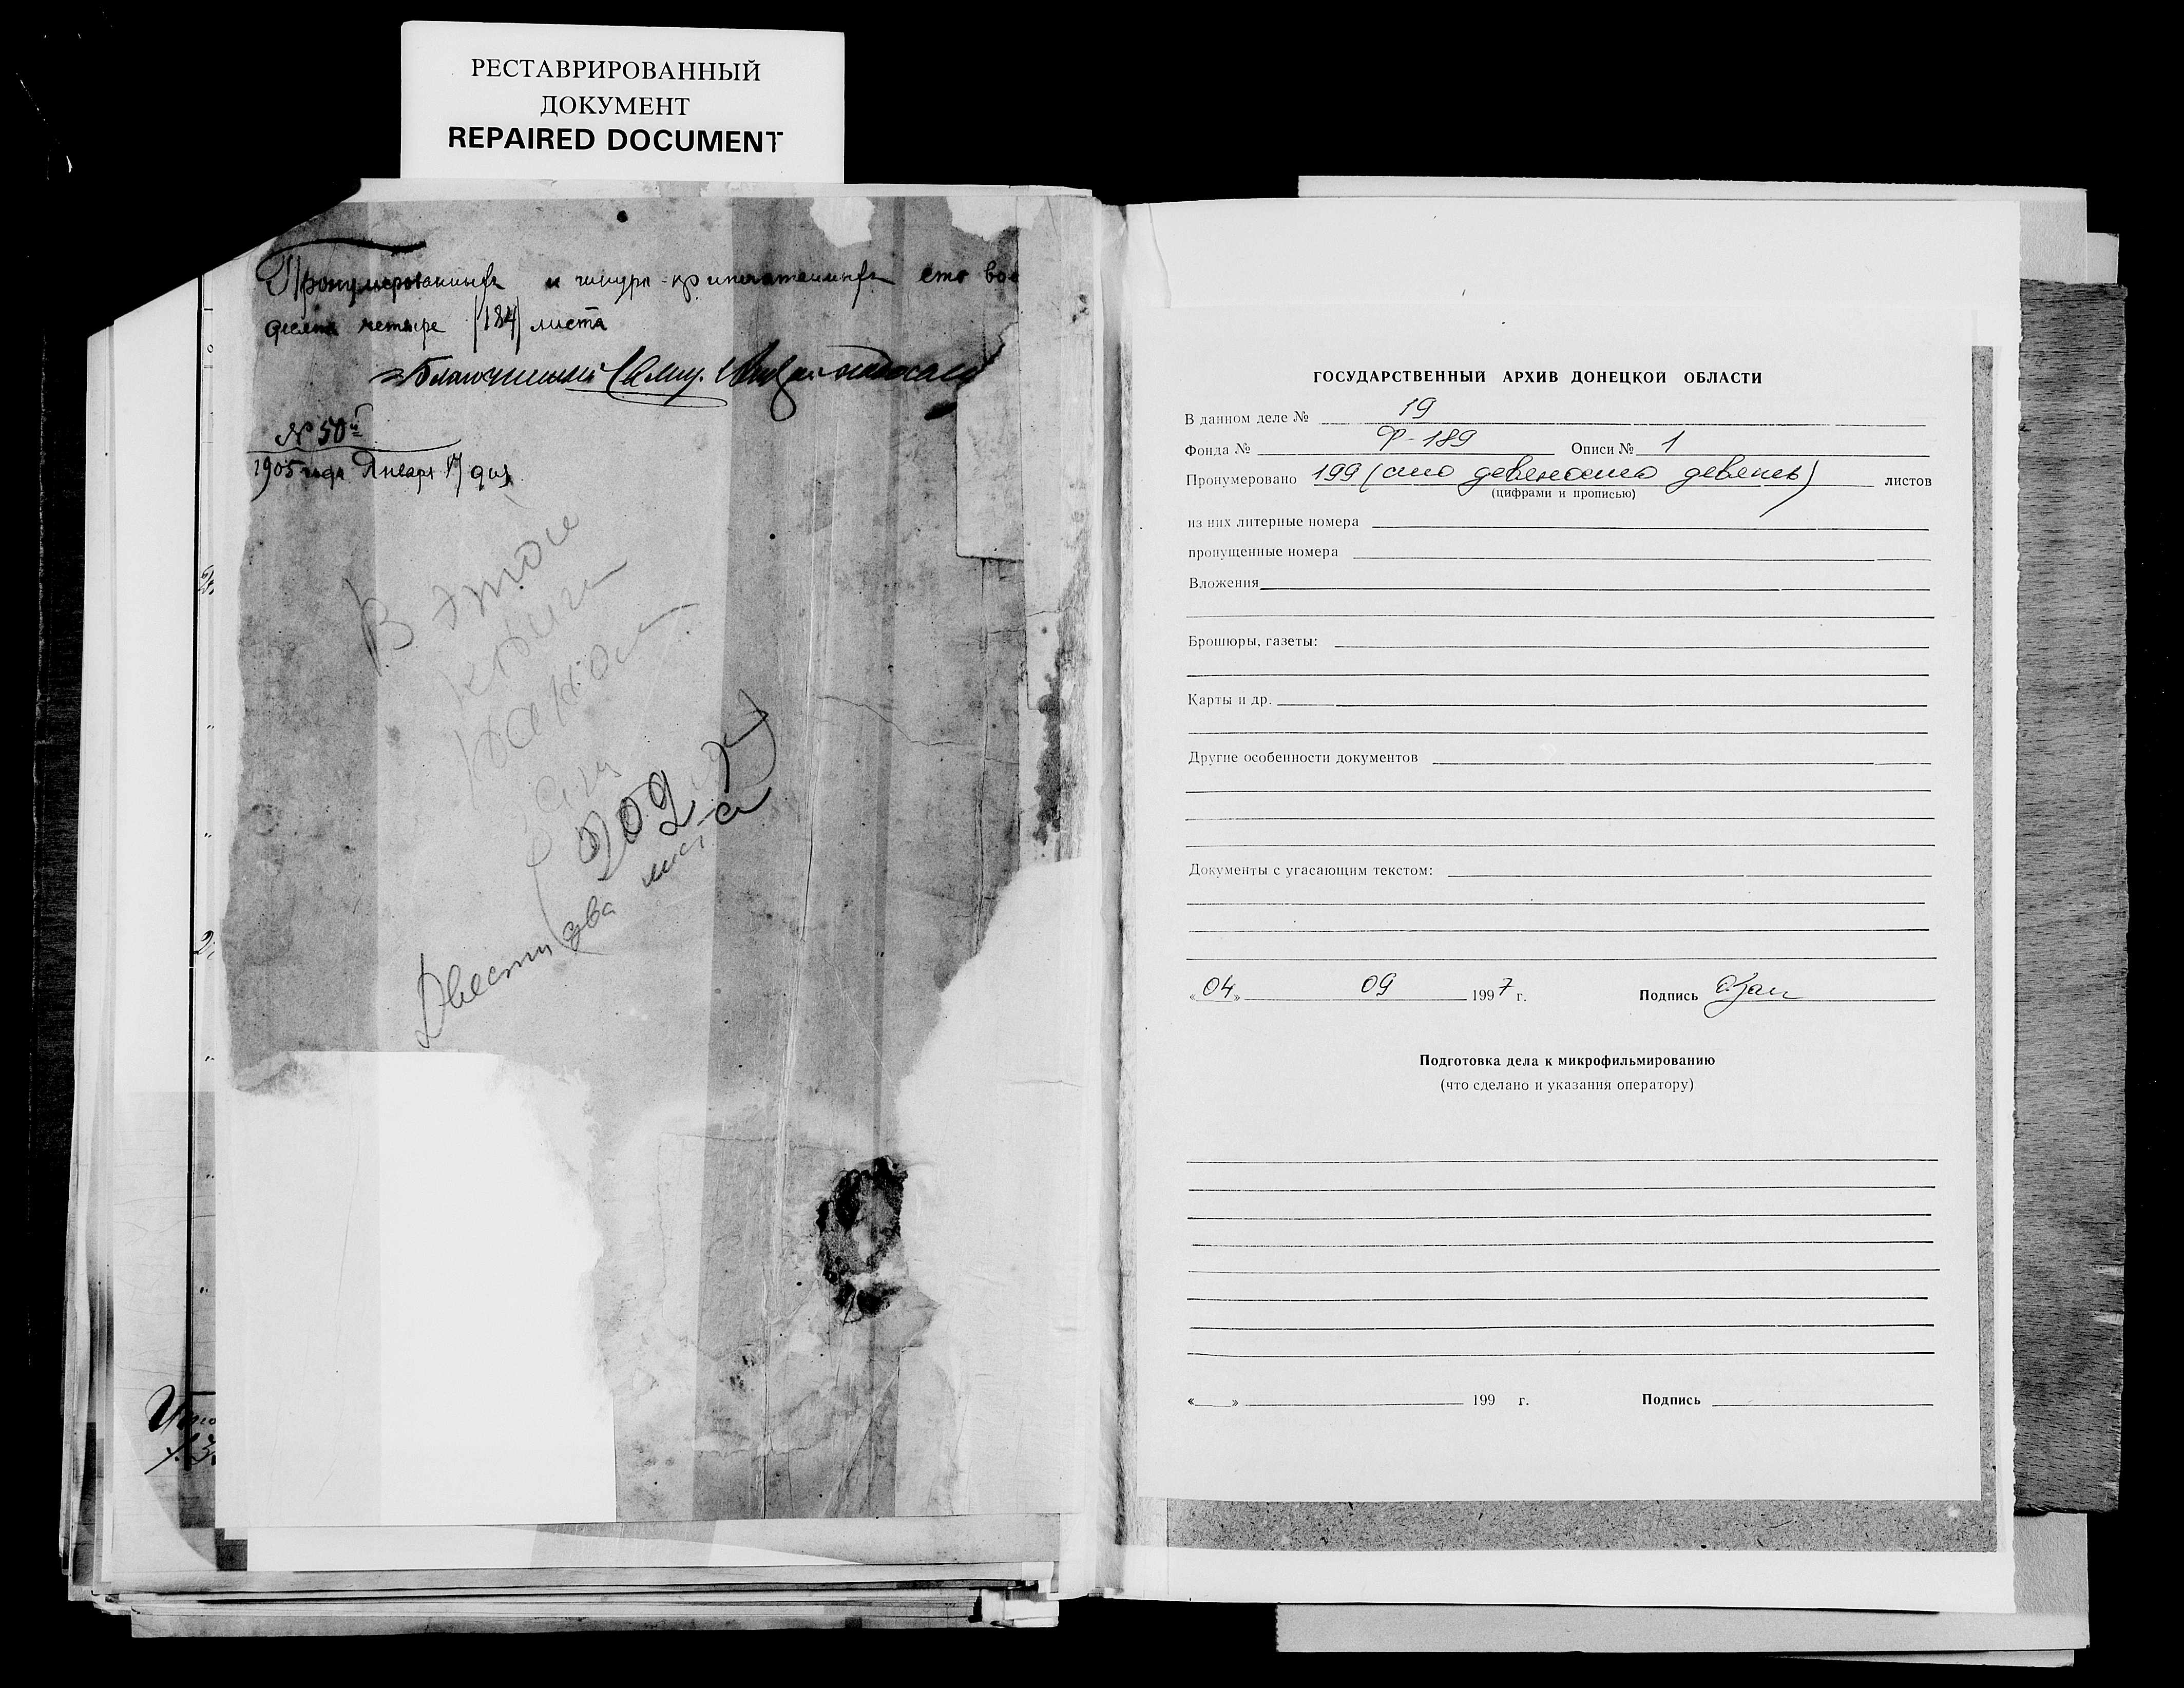 РЕСТАВРИРОВАННЫЙ
ДОКУМЕНТ
REPAIRED DOCUMENT
сто вос
десятъ четыре (184) листа
Благочинный Свящ.
№ 50й
1905 года Января 17 дня
В этой
книги
202
Двести два листа
ГОСУДАРСТВЕННЫЙ АРХИВ ДОНЕЦКОЙ ОБЛАСТИ
В данном деле № 19
Фонда № Ф-189 Описи № 1
Пронумеровано 199 (сто девяносто девять) листов
(цифрами и прописью)
из них литерные номера
пропущенные номера
Вложения
Брошюры, газеты:
Карты и др.
Другие особенности документов
Документы с угасающим текстом:
«04» 09 1997 г. Подпись
Подготовка дела к микрофильмированию
(что сделано и указания оператору)
« » 199 г. Подпись